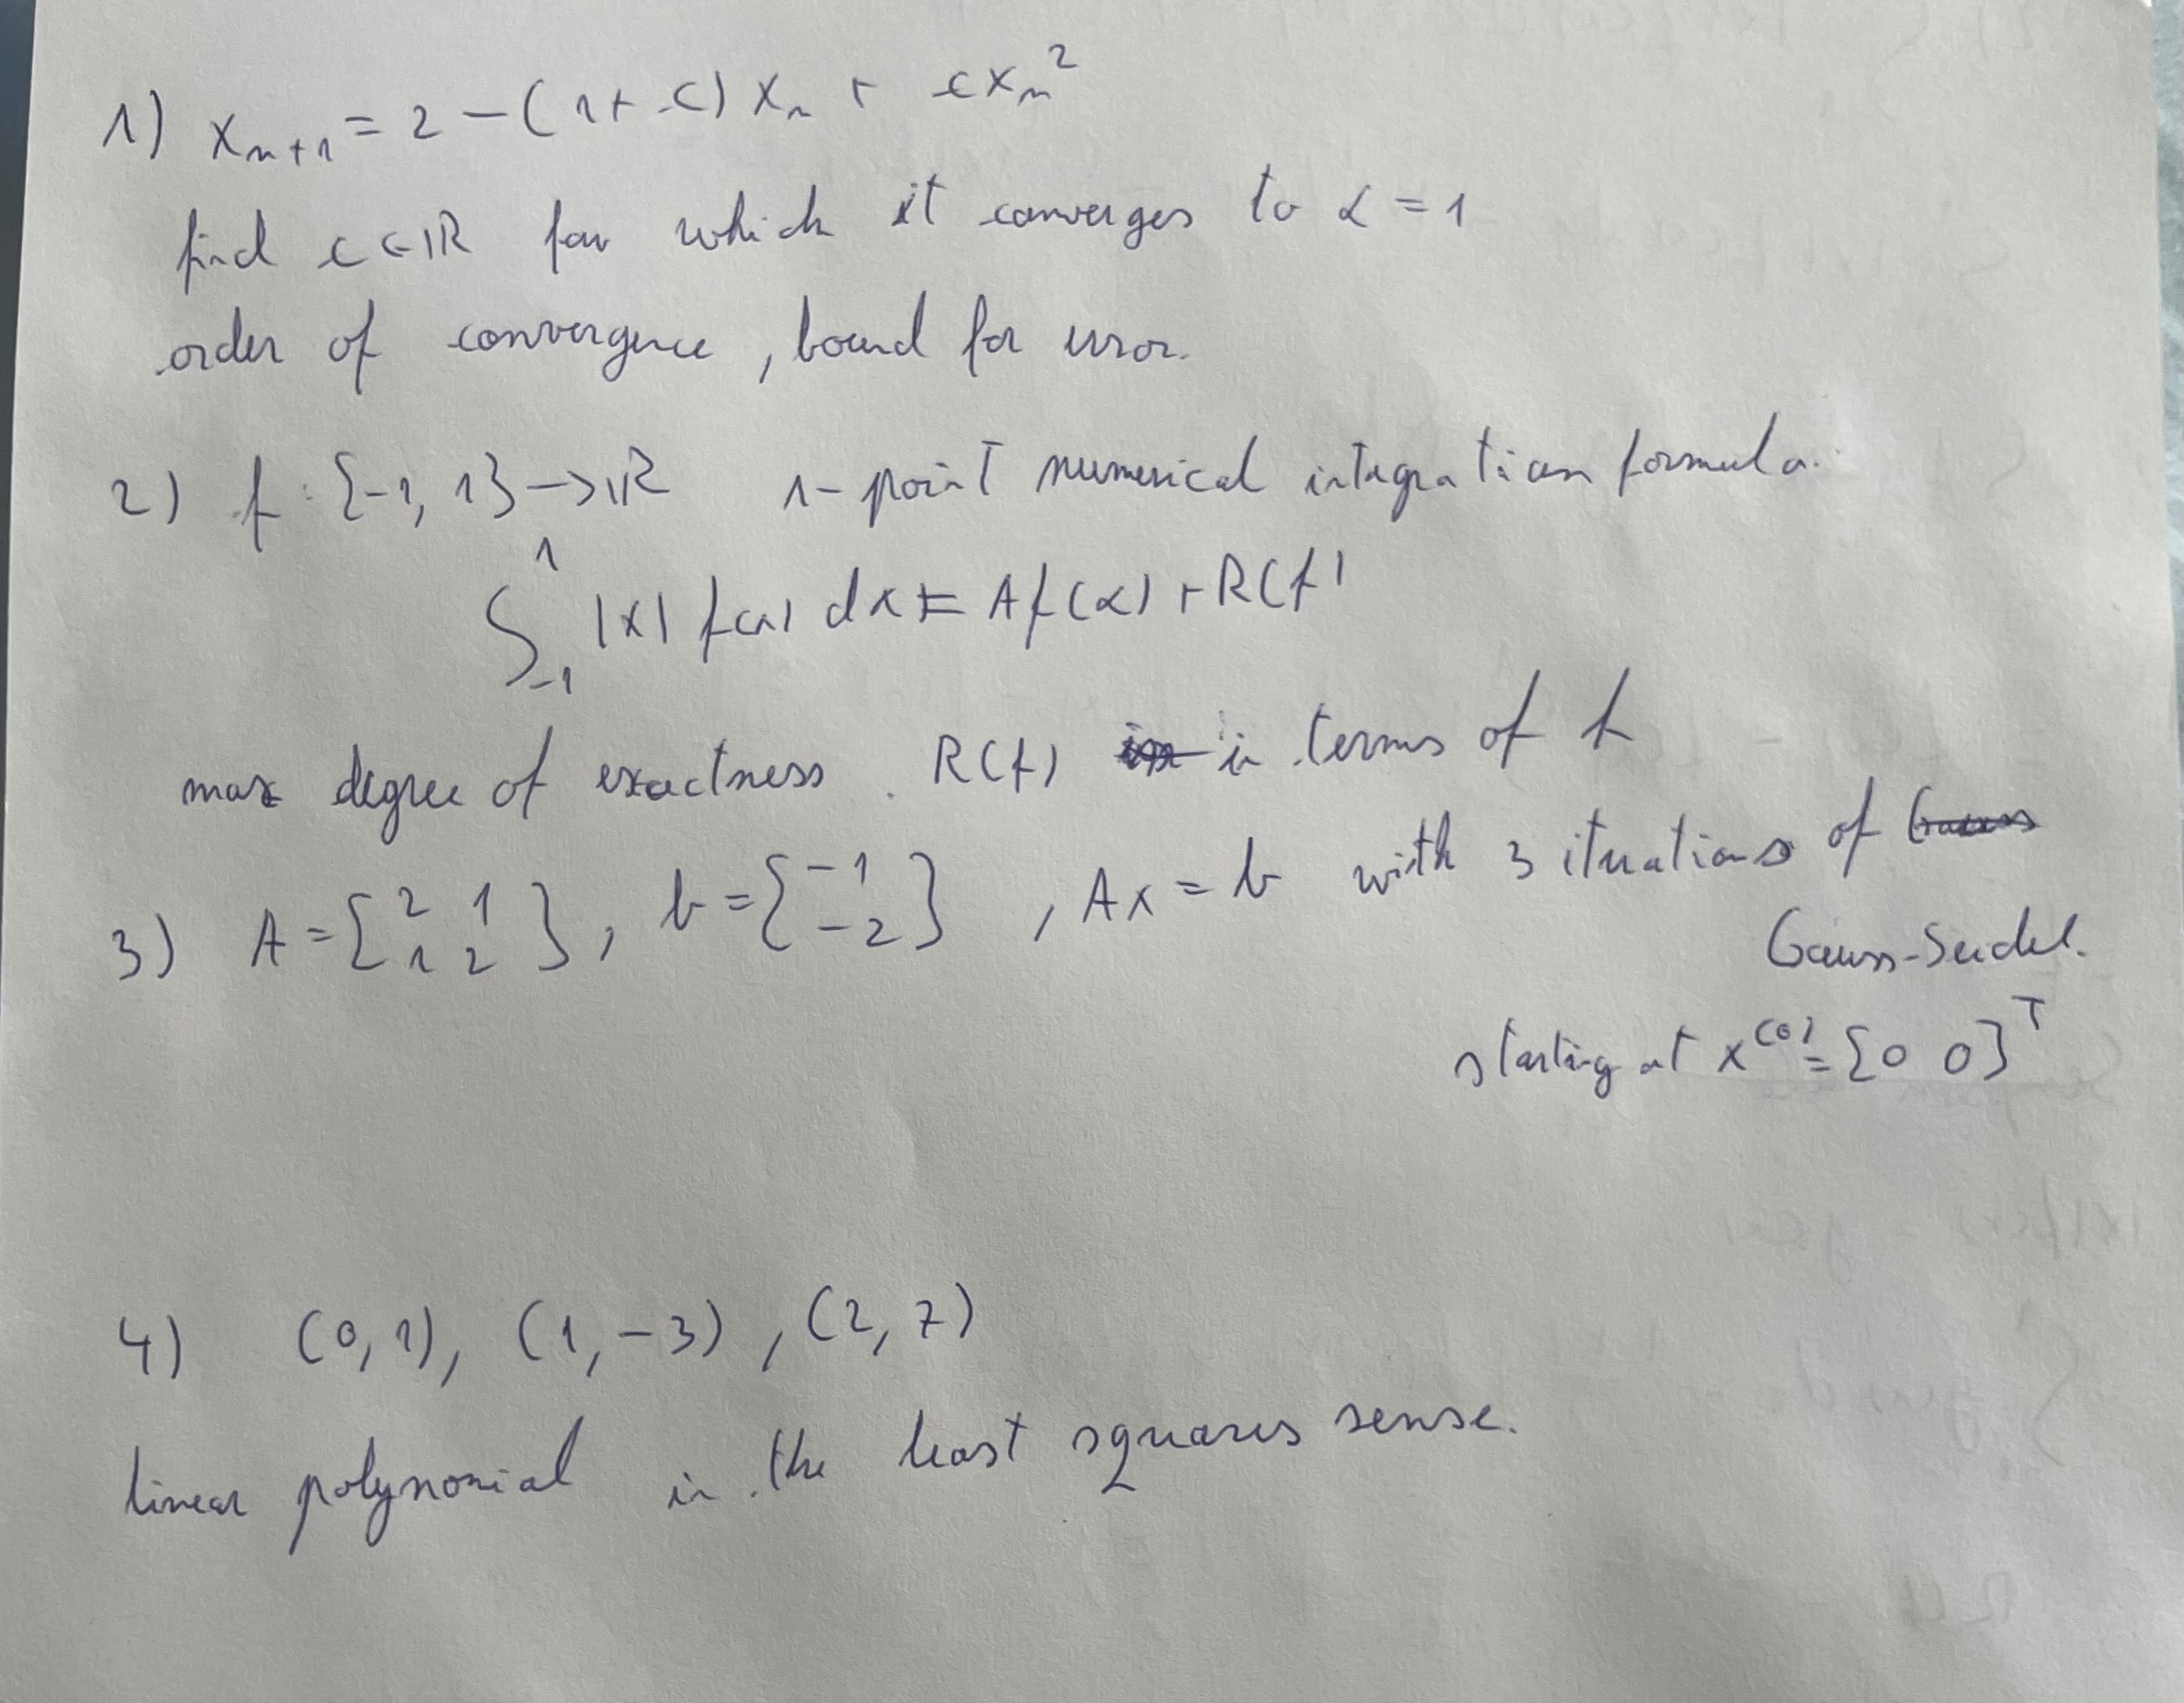 1) x_{n+1} = 2 - (1 + c) x_n + c x_n^2
find c ∈ ℝ for which it converges to α = 1
order of convergence, bound for error.
2) f: [-1, 1] → ℝ 1-point numerical integration formula.
∫_{-1}^{1} |x| f(x) dx = A f(α) + R(f)
max degree of exactness. R(f) in terms of f
3) A = [2 1; 1 2], b = [-1; -2], Ax = b with 3 iterations of
Gauss-Seidel.
starting at x^(0) = [0 0]^T
4) (0, 1), (1, -3), (2, 7)
linear polynomial in the least squares sense.